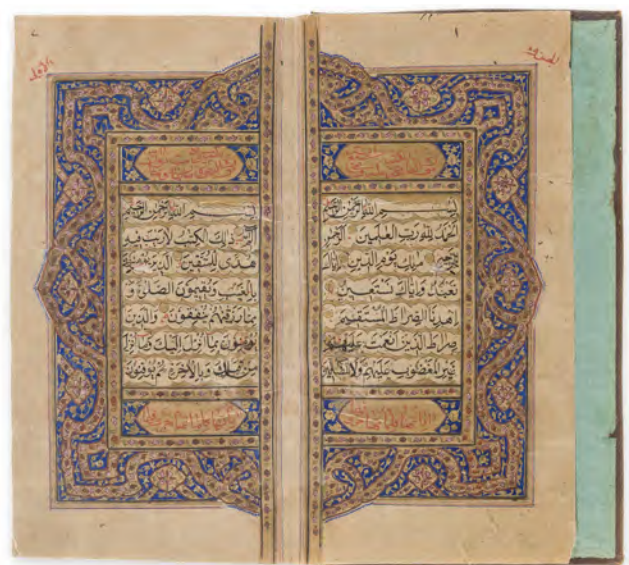 بِسْمِ اللهِ الرَّحْمٰنِ الرَّحِيْمِ
الْحَمْدُ لِلّٰهِ رَبِّ الْعٰلَمِيْنَ الرَّحْمٰنِ
الرَّحِيْمِ مٰلِكِ يَوْمِ الدِّيْنِ اِيَّاكَ
نَعْبُدُ وَاِيَّاكَ نَسْتَعِيْنُ
اِهْدِنَا الصِّرَاطَ الْمُسْتَقِيْمَ
صِرَاطَ الَّذِيْنَ اَنْعَمْتَ عَلَيْهِمْ
غَيْرِ الْمَغْضُوْبِ عَلَيْهِمْ وَلَا الضَّالِّيْنَ
بِسْمِ اللهِ الرَّحْمٰنِ الرَّحِيْمِ
الٓمّٓ ذٰلِكَ الْكِتٰبُ لَا رَيْبَ فِيْهِ
هُدًى لِلْمُتَّقِيْنَ الَّذِيْنَ يُؤْمِنُوْنَ
بِالْغَيْبِ وَيُقِيْمُوْنَ الصَّلٰوةَ وَ
مِمَّا رَزَقْنٰهُمْ يُنْفِقُوْنَ وَالَّذِيْنَ
يُؤْمِنُوْنَ بِمَا اُنْزِلَ اِلَيْكَ وَمَا اُنْزِلَ
مِنْ قَبْلِكَ وَبِالْاٰخِرَةِ هُمْ يُوْقِنُوْنَ